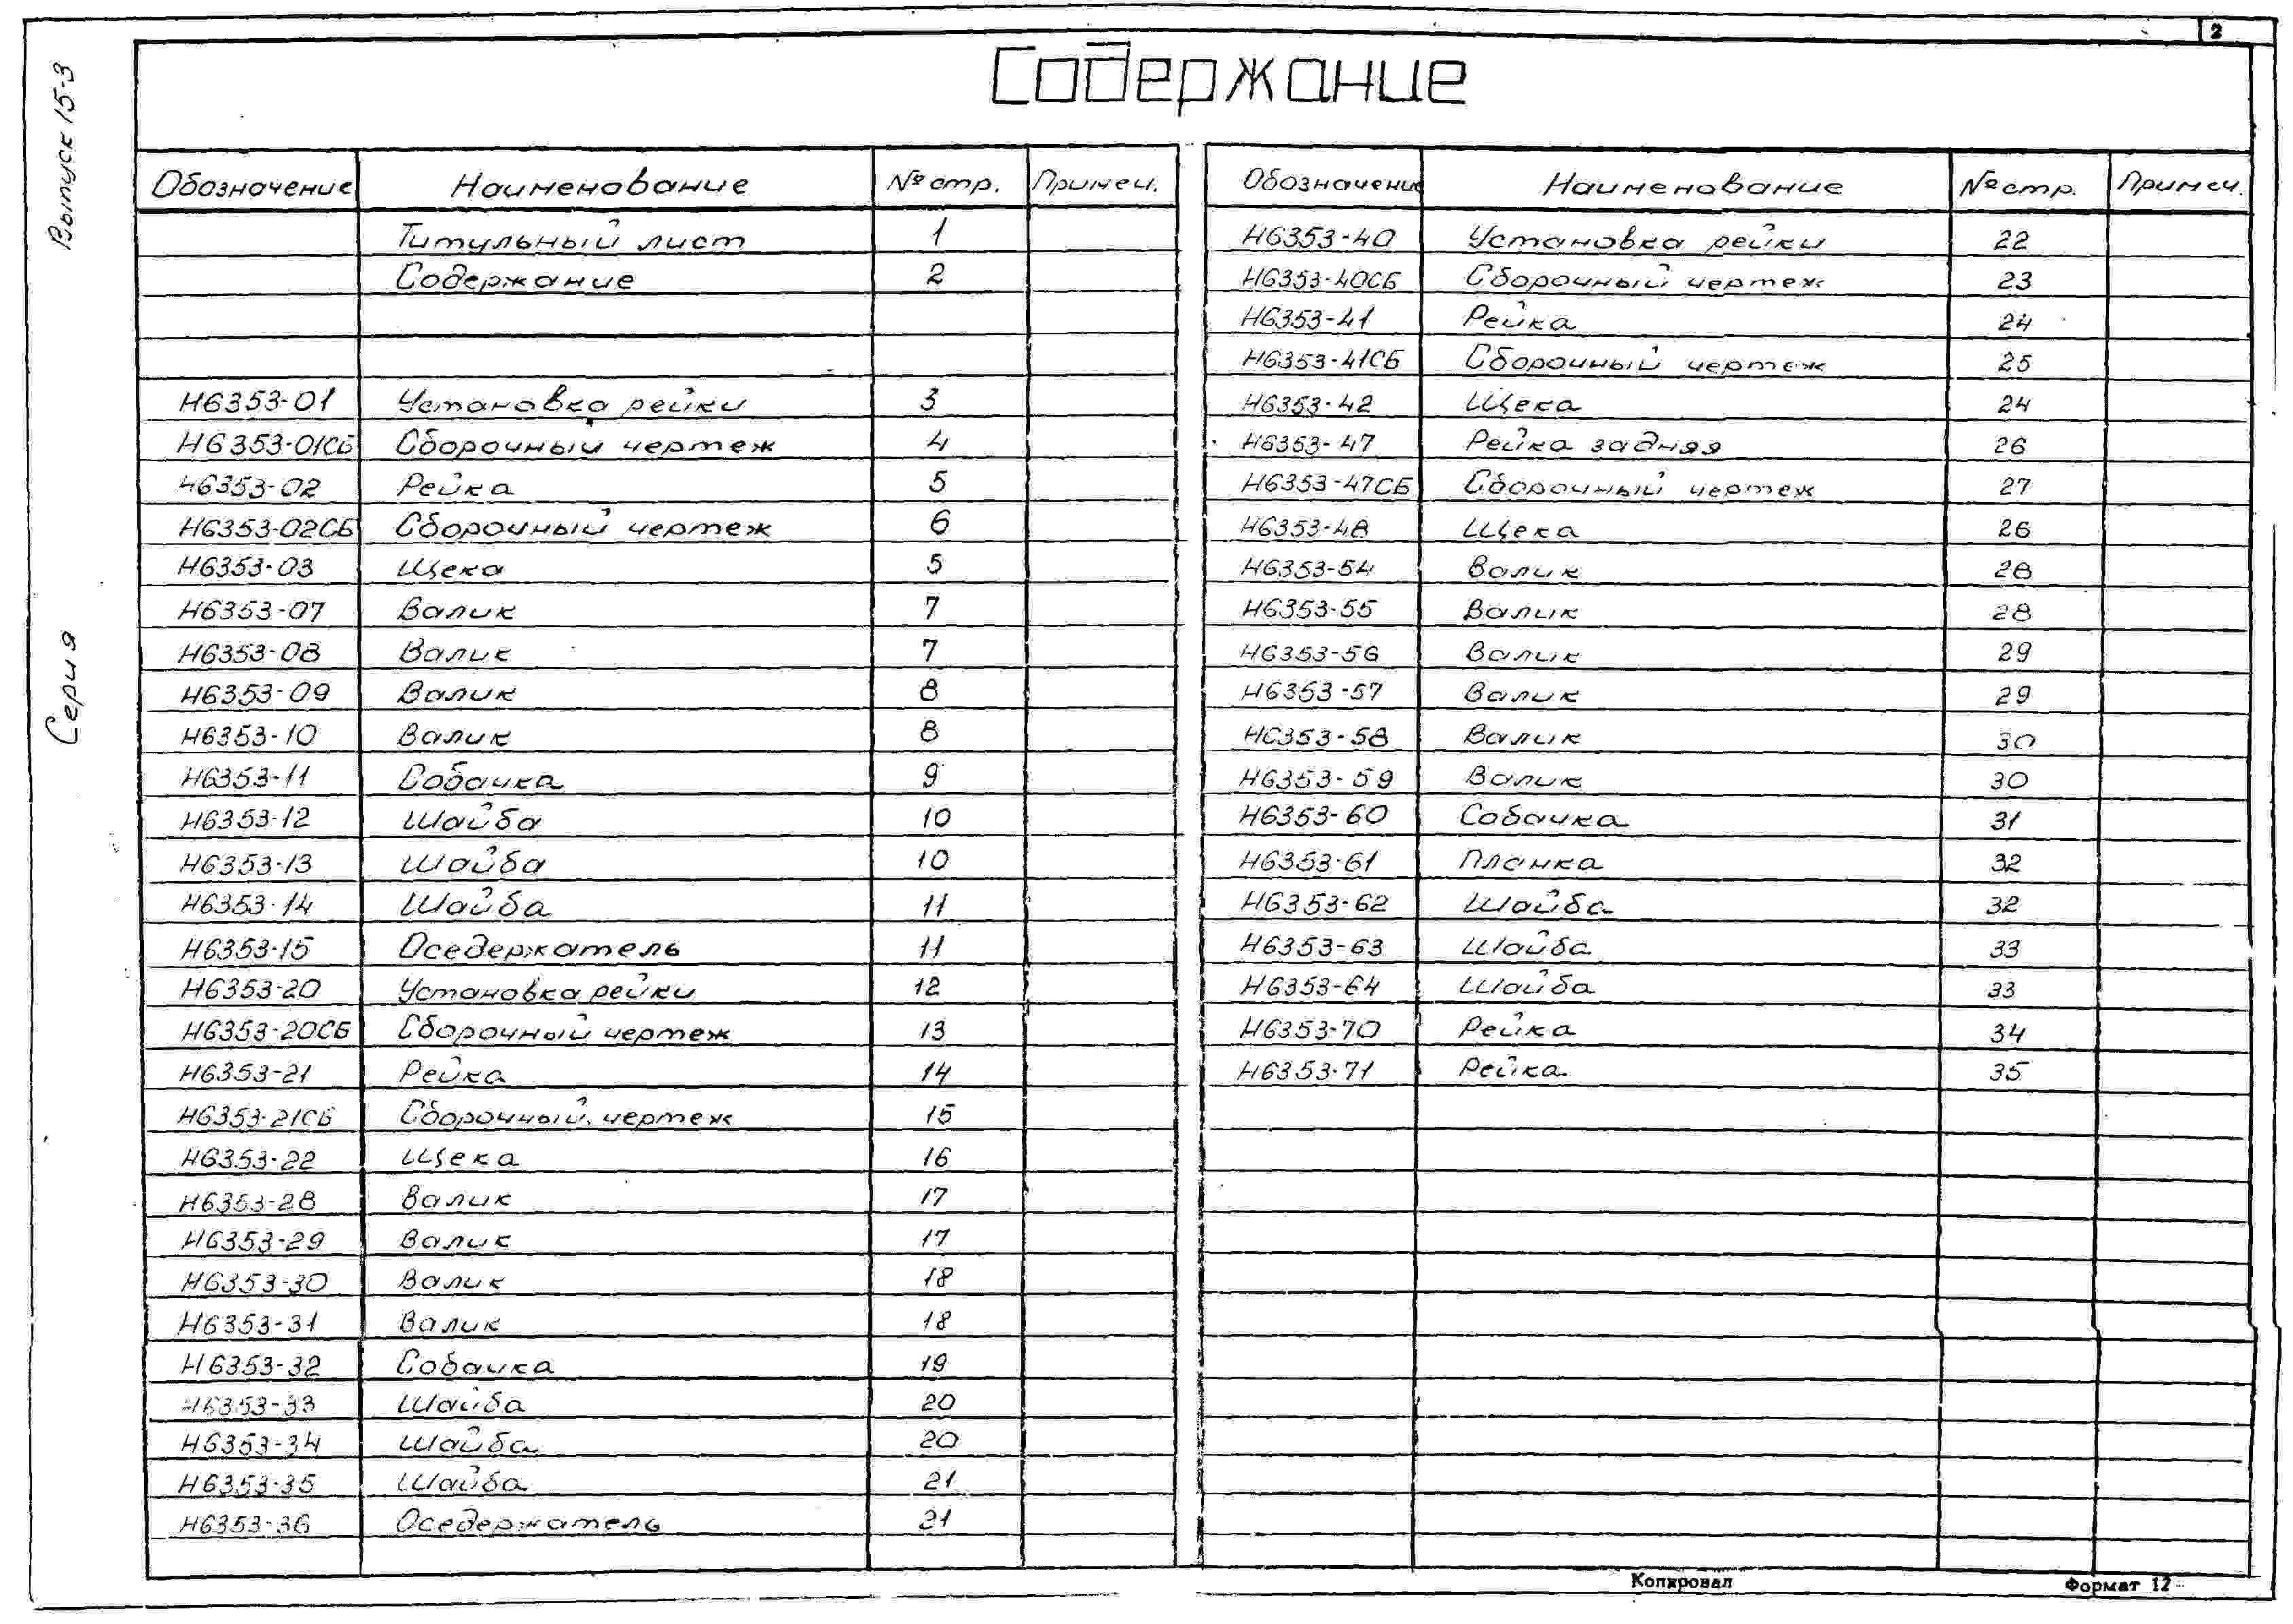 2
Содержание
Выпуск 15-3
Серия
Обозначение Наименование № стр. Примеч.
Титульный лист 1
Содержание 2
Н6353-01 Установка рейки 3
Н6353-01СБ Сборочный чертеж 4
Н6353-02 Рейка 5
Н6353-02СБ Сборочный чертеж 6
Н6353-03 Щека 5
Н6353-07 Валик 7
Н6353-08 Валик 7
Н6353-09 Валик 8
Н6353-10 Валик 8
Н6353-11 Собачка 9
Н6353-12 Шайба 10
Н6353-13 Шайба 10
Н6353-14 Шайба 11
Н6353-15 Оседержатель 11
Н6353-20 Установка рейки 12
Н6353-20СБ Сборочный чертеж 13
Н6353-21 Рейка 14
Н6353-21СБ Сборочный чертеж 15
Н6353-22 Щека 16
Н6353-28 Валик 17
Н6353-29 Валик 17
Н6353-30 Валик 18
Н6353-31 Валик 18
Н6353-32 Собачка 19
Н6353-33 Шайба 20
Н6353-34 Шайба 20
Н6353-35 Шайба 21
Н6353-36 Оседержатель 21
Обозначение Наименование № стр. Примеч.
Н6353-40 Установка рейки 22
Н6353-40СБ Сборочный чертеж 23
Н6353-41 Рейка 24
Н6353-41СБ Сборочный чертеж 25
Н6353-42 Щека 24
Н6353-47 Рейка задняя 26
Н6353-47СБ Сборочный чертеж 27
Н6353-48 Щека 26
Н6353-54 Валик 28
Н6353-55 Валик 28
Н6353-56 Валик 29
Н6353-57 Валик 29
Н6353-58 Валик 30
Н6353-59 Валик 30
Н6353-60 Собачка 31
Н6353-61 Планка 32
Н6353-62 Шайба 32
Н6353-63 Шайба 33
Н6353-64 Шайба 33
Н6353-70 Рейка 34
Н6353-71 Рейка 35
Копировал Формат 12